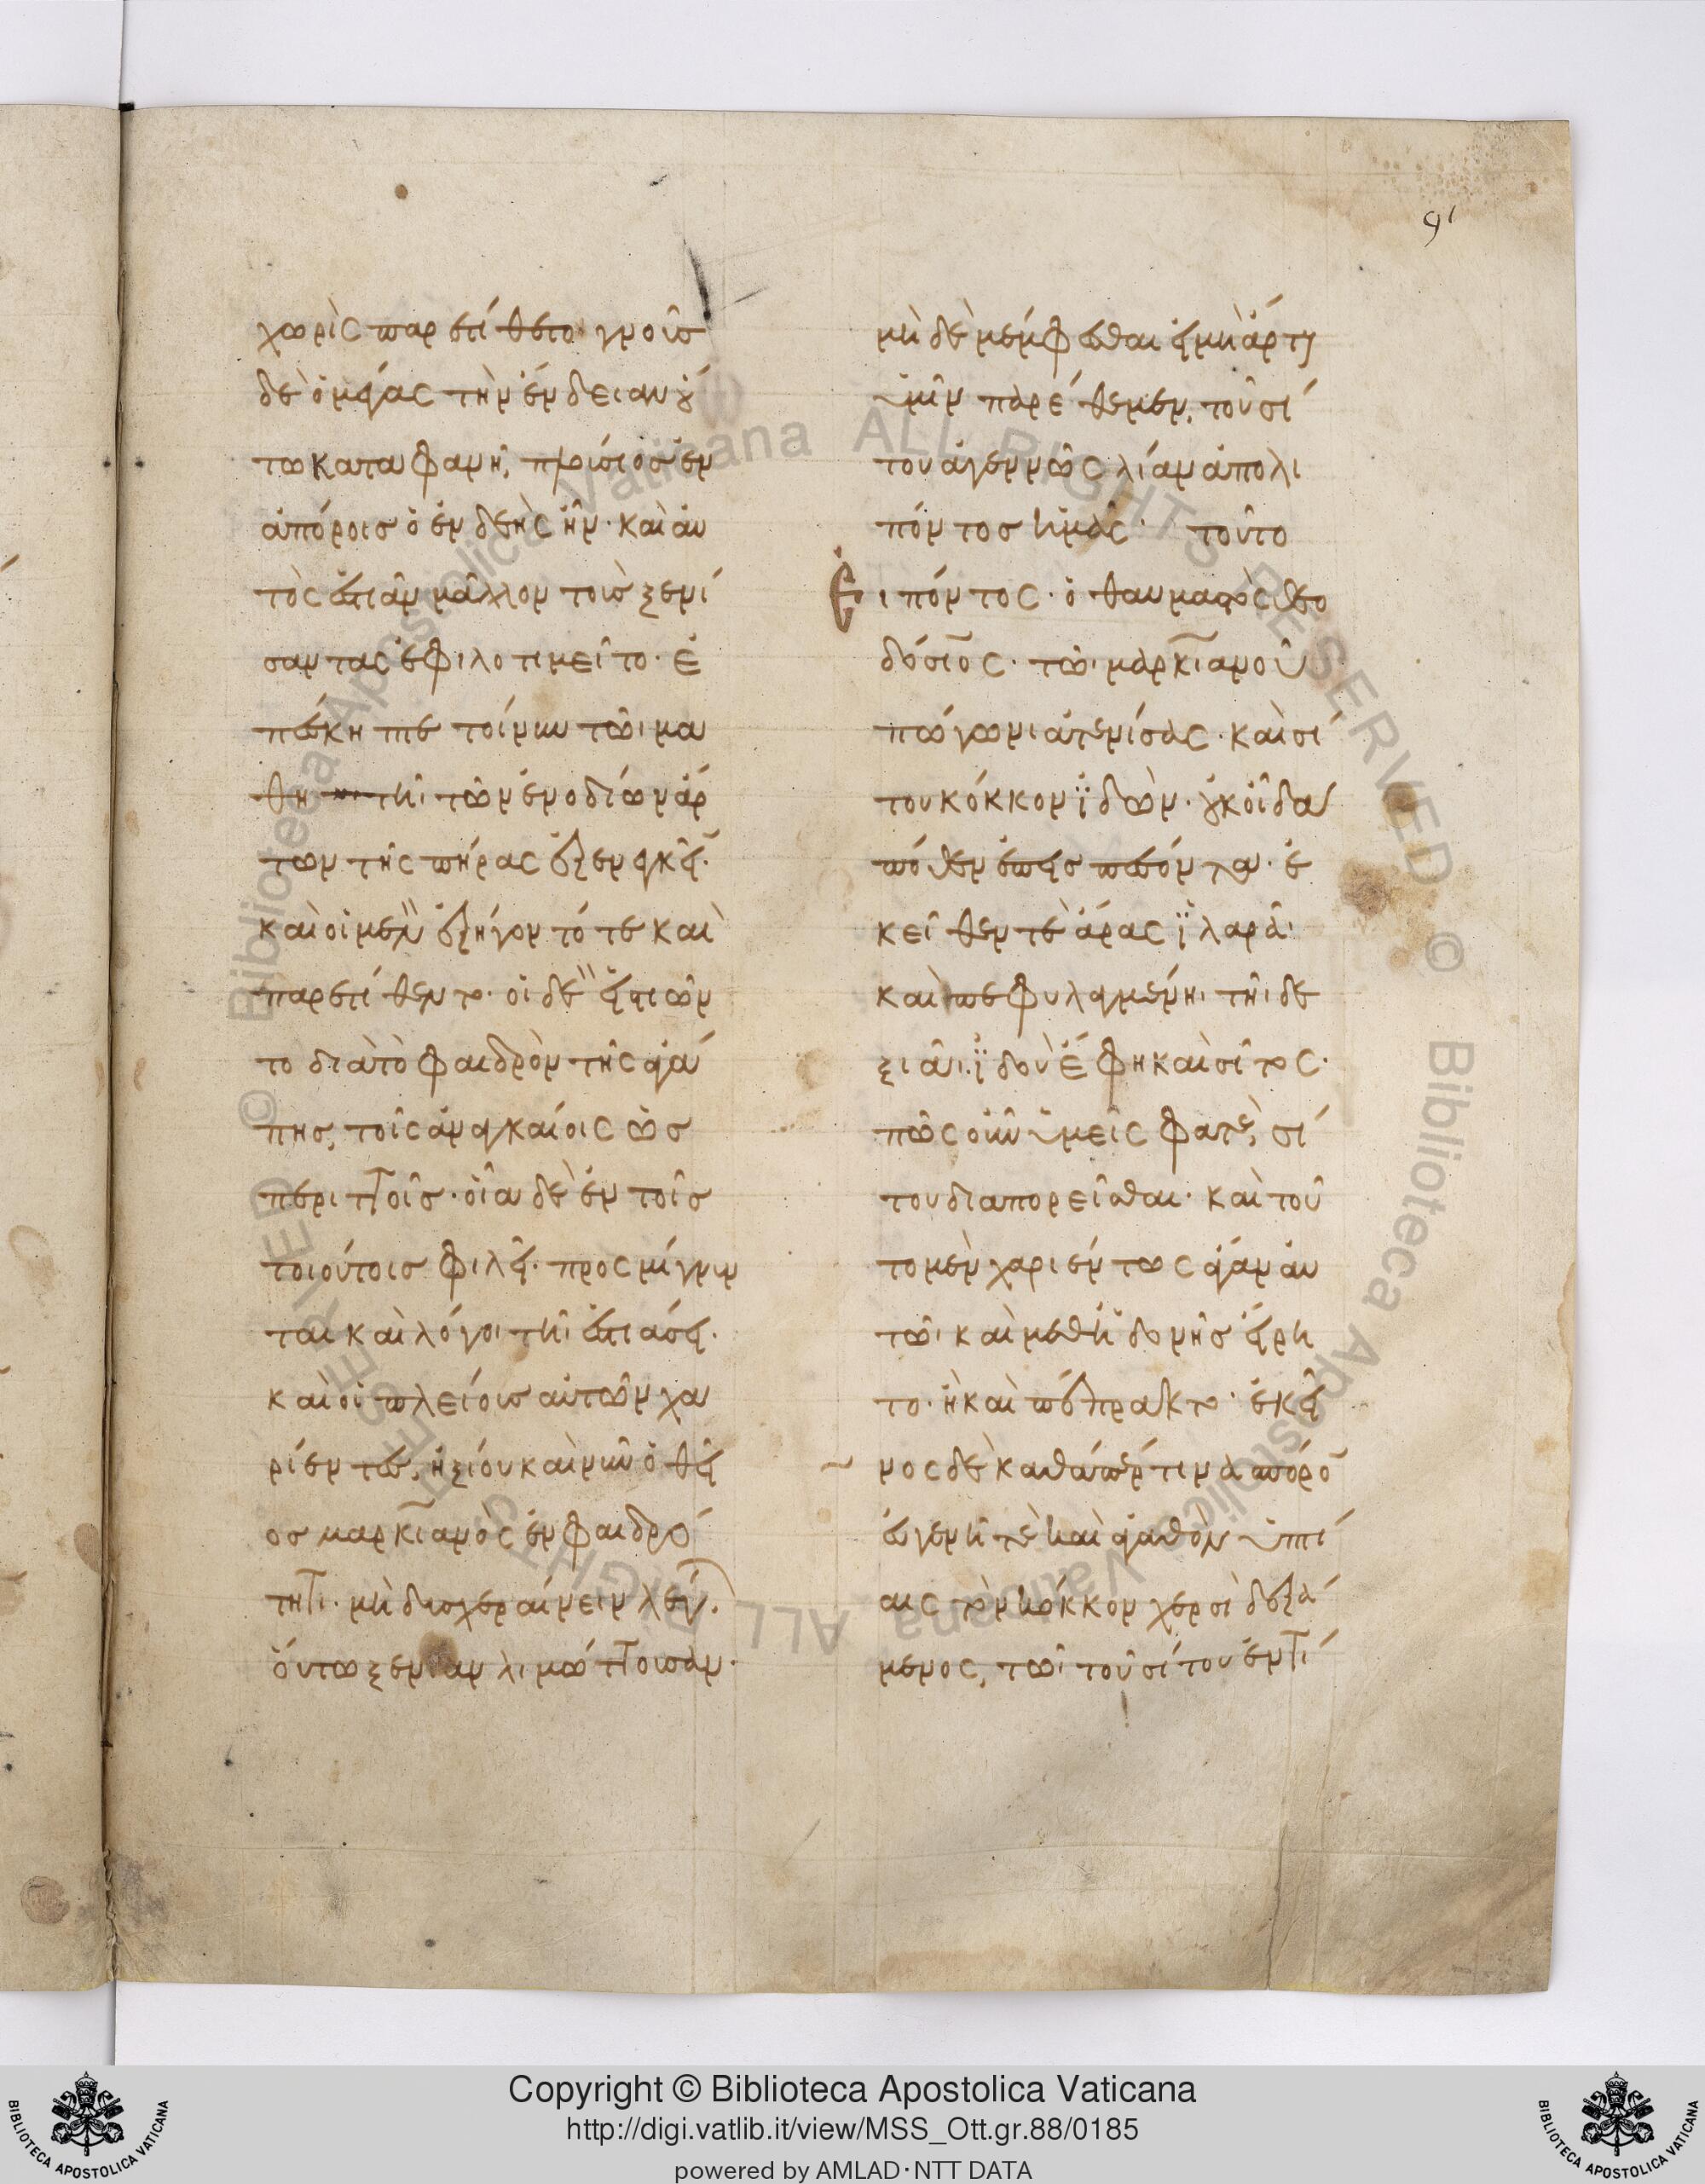 91
χωρὶς παρετίθετο· γνοὺς
δὲ ὁ μέγας τὴν ἔνδειαν οὔ
τω καταφανῆ, πρῶτος ἐν
ἀπόροις ὁ ἐνδεὴς ἦν· καὶ αυ
τὸς ἑστιᾶν μᾶλλον τοὺς ξενί
σαντας ἐφιλοτιμεῖτο· ἐ
πέσκηπτε τοίνυν τῶι μα
θητῆι τῶν ἐνοδίων ἄρ
των τῆς πήρας ἐξενεγκεῖν·
καὶ οἱ μὲν ἐξῆγον τό τε καὶ
παρετίθεντο· οἱ δὲ εἱστιῶν
το διὰ τὸ φαιδρὸν τῆς ἀγά
πης, τοῖς ἀναγκαίοις ὡς
περιττοῖς· οἷα δὲ ἐν τοῖς
τοιούτοις φιλεῖ· προσμίγνυν
ται καὶ λόγοι τῆι ἑστιάσει·
καὶ οἱ πλείους αὐτῶν χα
ριέντως, ἠξίου καὶ νῦν ὁ θεῖ
ος μαρκιανὸς ἐν φαιδρό
τητι· μὴ δυσχεραίνειν λέγων·
οὕτω ξενίαν λιμώττουσαν·
μὴ δὲ μέμφεσθαι εἰ μὴ ἄρτον
ὑμῖν παρέθεμεν, τοῦ σί
του ἀγεννῶς λίαν ἀπολι
πόντος ἡμᾶς· τοῦτο
Εἰπόντος· ὁ θαυμαστὸς θεο
δόσιος· τῶι μαρκιανοῦ
πώγωνι ἀτενίσας· καὶ σί
του κόκκον ἰδὼν· οὐκ οἶδα
πόθεν ἐπεισπεσόντα· ἐ
κεῖθέν τε ἄρας ἱλαρᾶι
καὶ πεφυλαγμένηι τῆι δε
ξιᾶι· ἰδοὺ ἔφη καὶ σῖτος·
πῶς οὖν ὑμεῖς φατέ, σί
του διαπορεῖσθαι· καὶ τοῦ
το μὲν χαριέντως ἄγαν αυ
τῶι καὶ μεθ' ἡδονῆς εἴρη
το· ἢ καὶ πέπρακτο· ἐκεῖ
νος δὲ καθάπέρ τινα σπόρον
εὐγενῆ τὲ καὶ ἀγαθὸν ὑπτί
αις τὸν κόκκον χερσὶ δεξά
μενος, τῶι τοῦ σίτου ἐντί
Copyright © Biblioteca Apostolica Vaticana
http://digi.vatlib.it/view/MSS_Ott.gr.88/0185
powered by AMLAD·NTT DATA
BIBLIOTECA APOSTOLICA VATICANA
BIBLIOTECA APOSTOLICA VATICANA